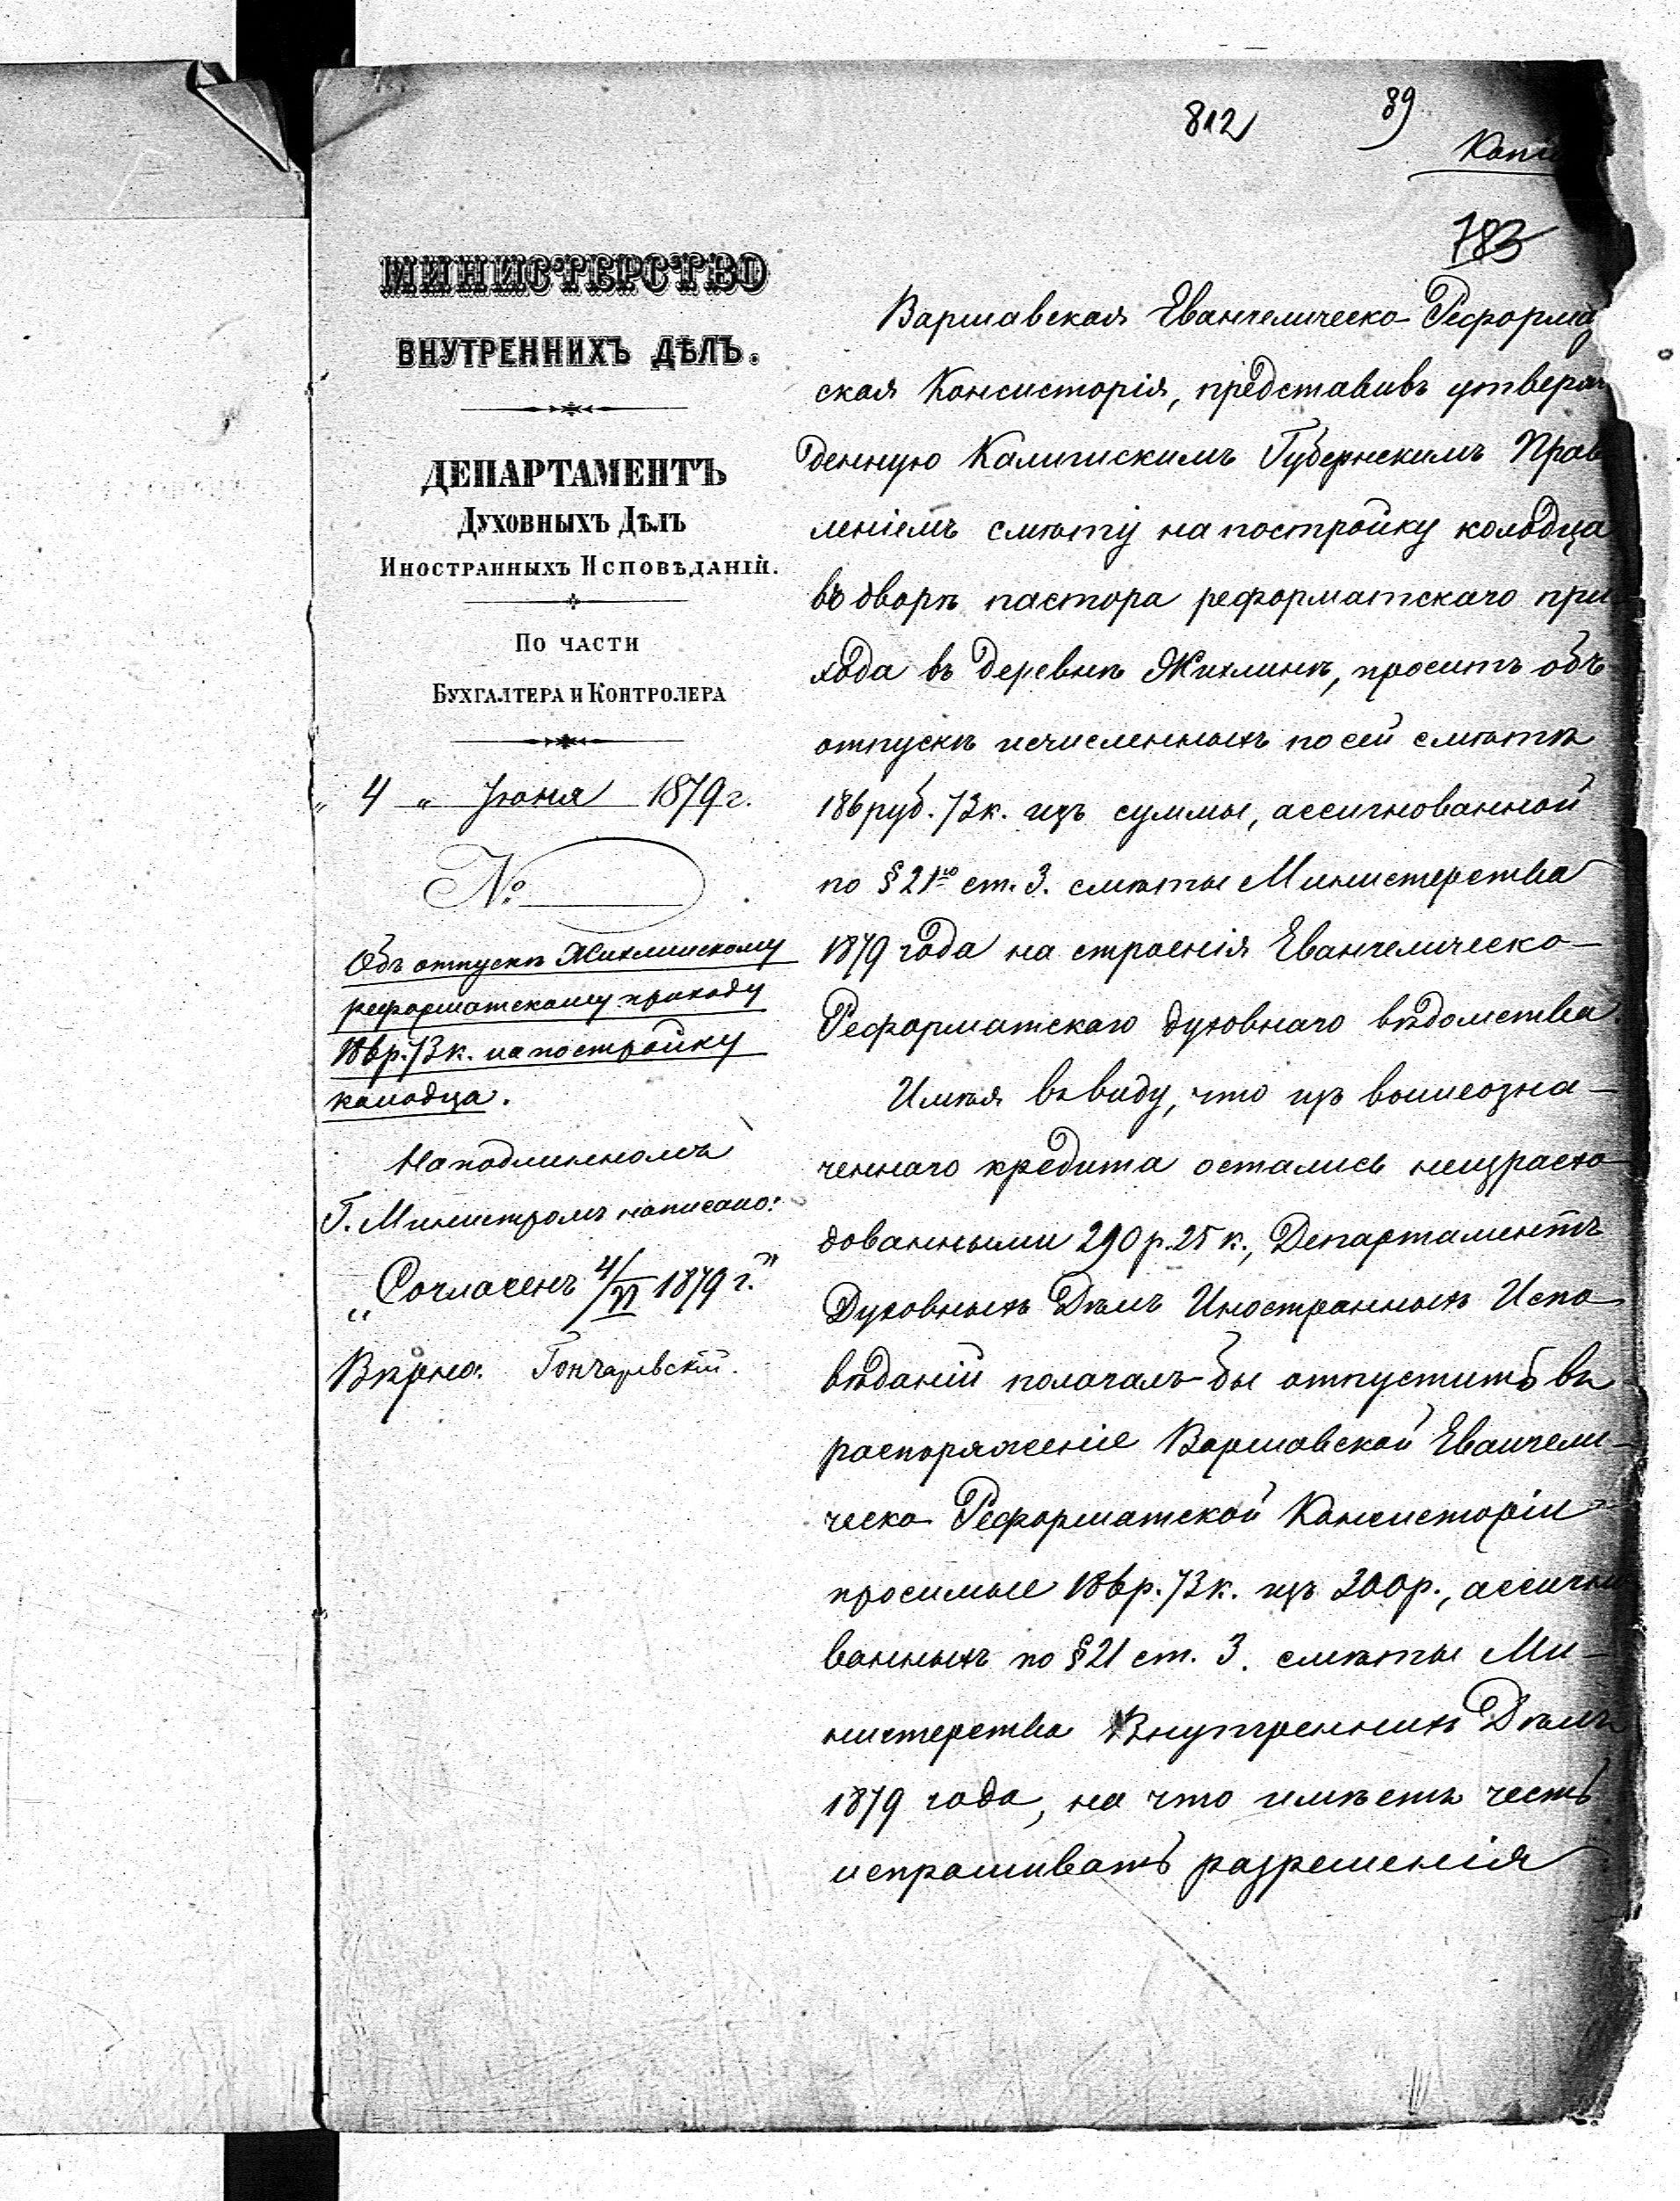 812
89
Копія
783
МИНИСТЕРСТВО
ВНУТРЕННИХЪ ДѢЛЪ.
ДЕПАРТАМЕНТЪ
ДУХОВНЫХЪ ДѢЛЪ
ИНОСТРАННЫХЪ ИСПОВѢДАНІЙ.
ПО ЧАСТИ
БУХГАЛТЕРА И КОНТРОЛЕРА
„ 4 „ Іюня 1879 г.
№
Объ отпускѣ Жихлинскому
реформатскому приходу
186 р. 73 к. на постройку
колодца.
На подлинномъ
Г. Министромъ написано:
„Согласенъ 4/VI 1879 г."
Вѣрно: Гончаревскій.
Варшавская Евангелическо-Реформа
ская Консисторія, представивъ утверж
денную Калишскимъ Губернскимъ Прав
леніемъ смѣту на постройку колодца
въ дворѣ пастора реформатскаго при
хода въ деревнѣ Жихлинѣ, проситъ объ
отпускѣ исчисленныхъ по сей смѣтѣ
186 руб. 73 к. изъ суммы, ассигнованной
по § 21ю ст. 3. смѣты Министерства
1879 года на строенія Евангелическо-
Реформатскаго духовнаго вѣдомства.
Имѣя въ виду, что изъ вышеозна-
ченнаго кредита остались неизрасхо-
дованными 290 р. 25 к., Департаментъ
Духовныхъ Дѣлъ Иностранныхъ Испо-
вѣданій полагалъ-бы отпустить въ
распоряженіе Варшавской Евангели-
ческо-Реформатской Консисторіи
просимые 186 р. 73 к. изъ 300 р., ассигно
ванныхъ по § 21 ст. 3. смѣты Ми-
нистерства Внутреннихъ Дѣлъ
1879 года, на что имѣетъ честь
испрашивать разрешенія